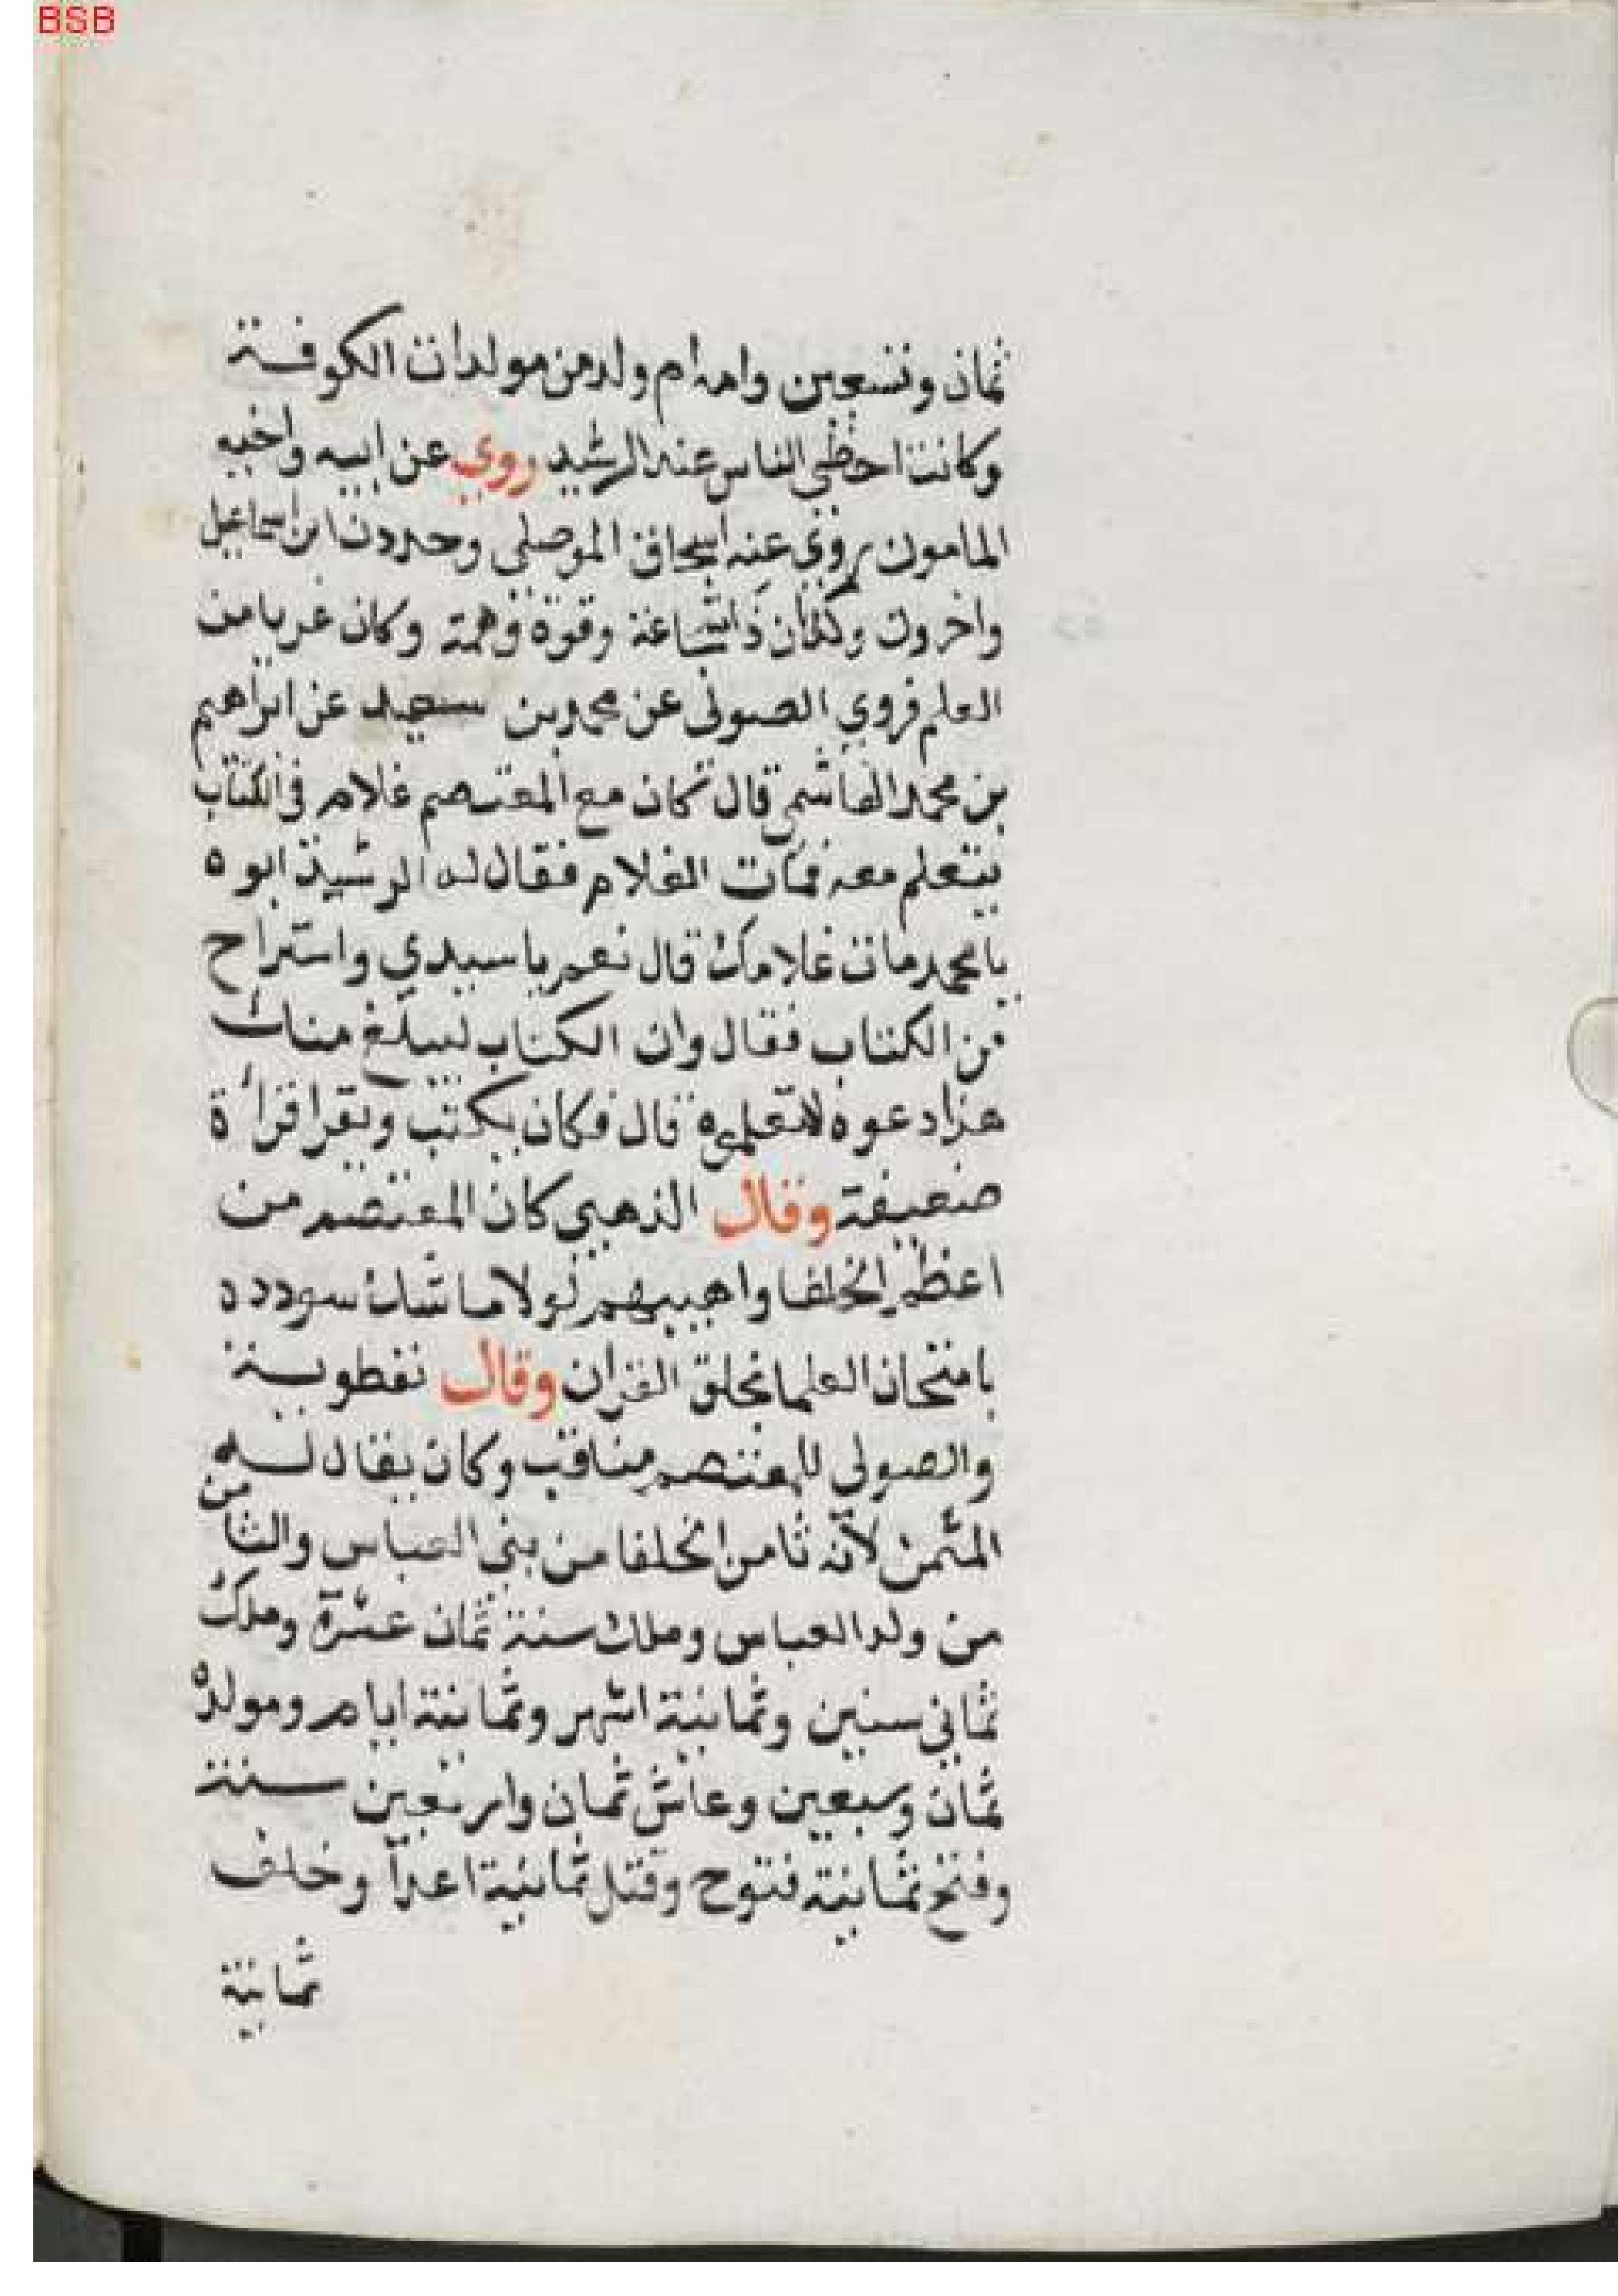 BSB
ثمان وتسعين وامه ام ولد من مولدات الكوفة
وكانت احظي الناس عند الرشيد روي عن ابيه واخيه
المامون روي عنه اسحاق الموصلي وحمدون ابن اسماعيل
واخرون وكان ذا شجاعة وقوة وهمة وكان عريا من
العلم فروي الصولي عن محمد بن سعيد عن ابراهيم
بن محمد الهاشمي قال كان مع المعتصم غلام في الكتاب
يتعلم معه فمات الغلام فقال له الرشيد ابوه
يا محمد مات غلامك قال نعم يا سيدي واستراح
من الكتاب فقال وان الكتاب ليبلغ منك
هذا دعوه لا تعلموه قال فكان يكتب ويقرا قرأة
ضعيفة وقال الذهبي كان المعتصم من
اعظم الخلفا واهيبهم لولا ما شان سودده
بامتحان العلما بخلق القران وقال نفطويه
والصولي للمعتصم مناقب وكان يقال له
المثمن لأنه ثامن الخلفا من بني العباس والثامن
من ولد العباس وملك سنة ثمان عشرة وملك
ثماني سنين وثمانية اشهر وثمانية ايام ومولده
ثمان وسبعين وعاش ثمان واربعين سنة
وفتح ثمانية فتوح وقتل ثمانية اعدآ وخلف
ثمانية